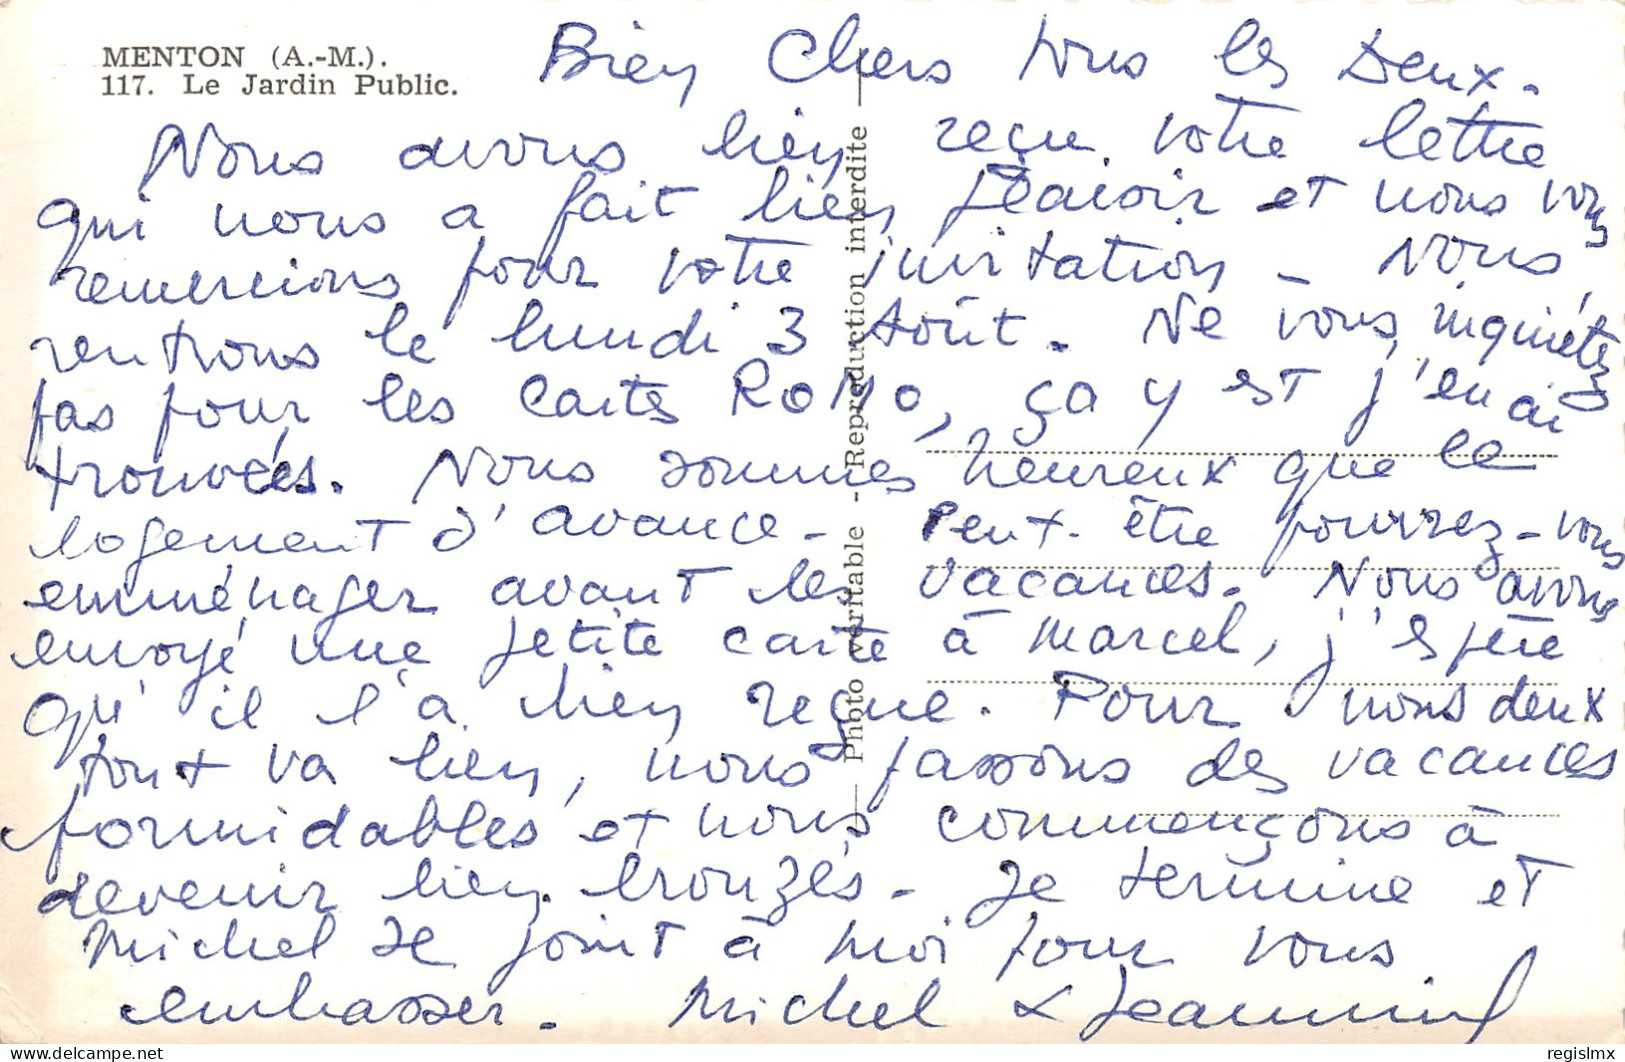 MENTON (A.-M.).
117. Le Jardin Public.
Bien Chers tous les Deux.
Nous avons bien reçu votre lettre
qui nous a fait bien plaisir et nous vous
remercions pour votre invitation - Nous
rentrons le lundi 3 Août. Ne vous inquiétez
pas pour les cartes ROMO, ça y est j'en ai
trouvées. Nous sommes heureux que le
logement d'avance - Peut-être pourrez-vous
emménager avant les vacances. Nous avons
envoyé une petite carte à Marcel, j'espère
qu'il l'a bien reçue. Pour nous deux
tout va bien, nous passons des vacances
formidables et nous commençons à
devenir bien bronzés - Je termine et
Michel se joint à moi pour vous
embrasser - Michel & Jeannine
Photo véritable - Reproduction interdite
regislmx